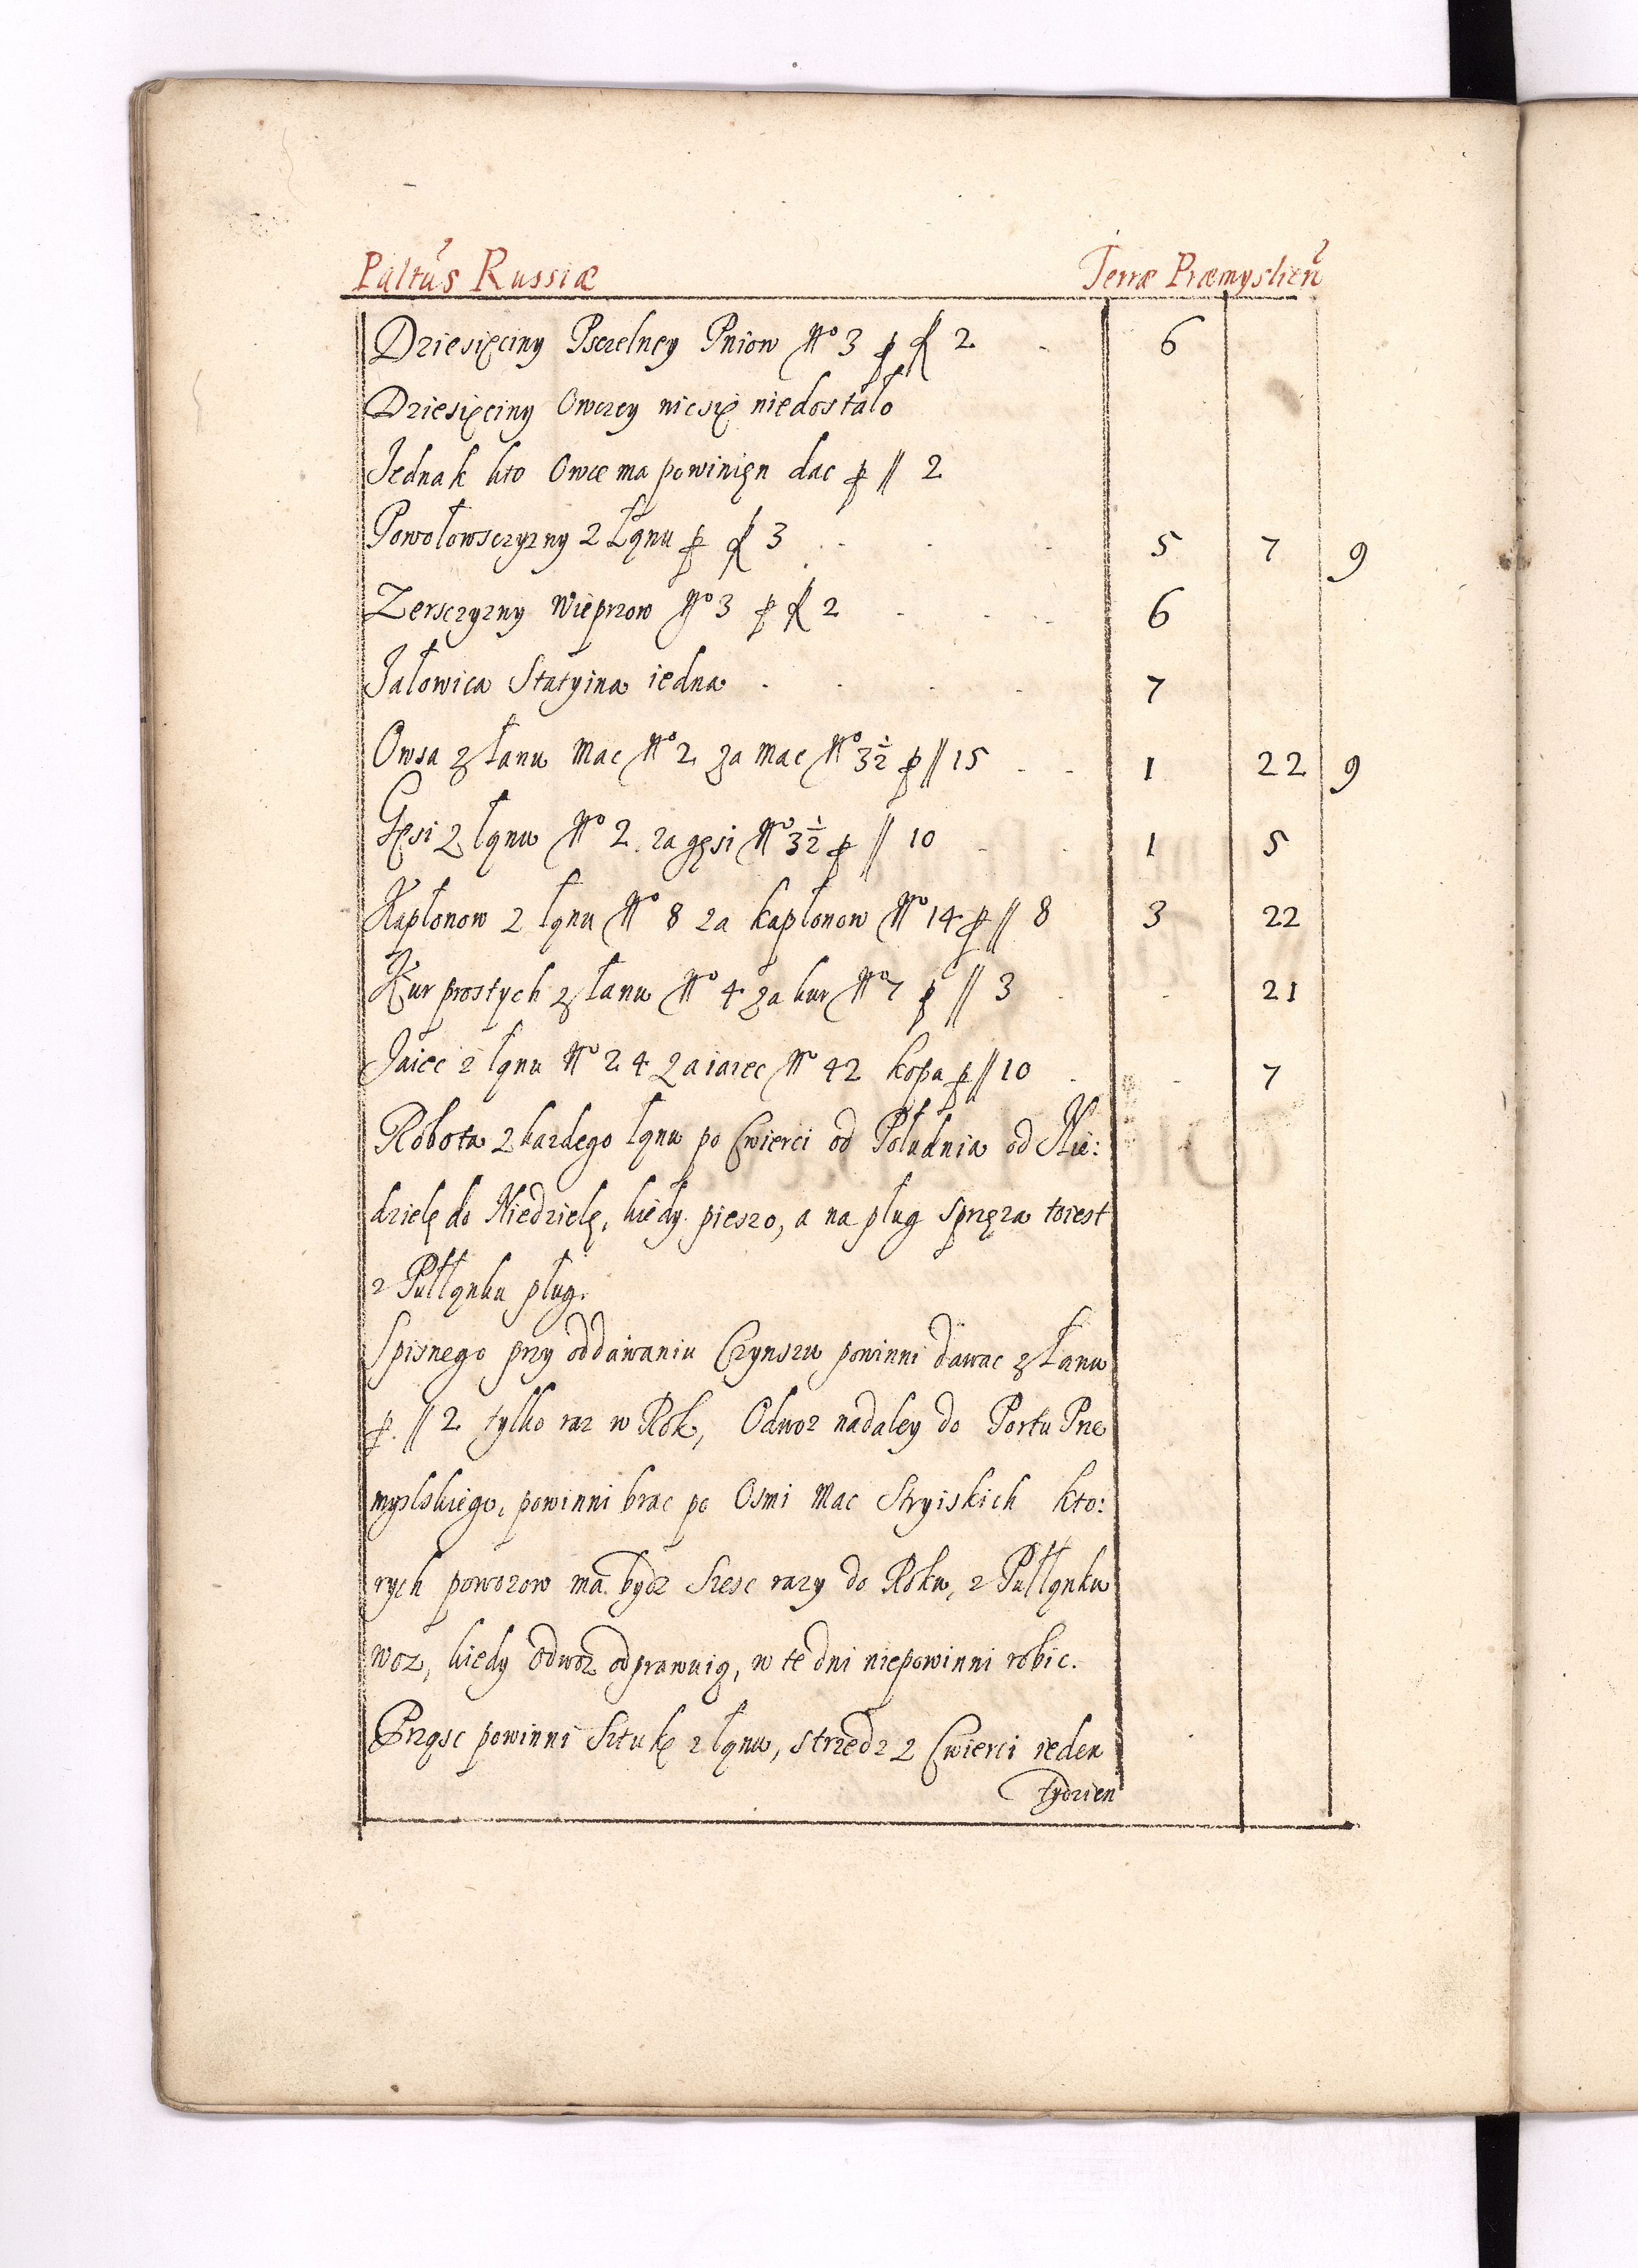 Paltus Russiæ Terræ Præmyslien
Dziesięciny Psczelney Pniow No 3 p fl 2 6
Dziesięciny Owczey nicsię niedostało
Jednak kto Owce ma powinięn dac p // 2
Powołowsczyzny z Łąnu p fl 3 5 7 9
Zersczyzny Wieprzow No 3 p fl 2 6
Jałowica Statyina iedna 7
Owsa z Łanu Mac No 2 za Mac No 3½ p // 15 1 22 9
Gęsi z łąnu No 2 za gęsi No 3½ p // 10 1 5
Kapłonow z łąnu No 8 za kapłonow No 14 p // 8 3 22
Kur prostych z Łanu No 4 za kur No 7 p // 3 21
Jaiec z łąnu No 24 za iaiec No 42 kopa p // 10 7
Robota z kazdego łąnu po Cwierci od Południa od Nie:
dzielę do Niedzielę, kiedy pieszo, a na pług Spręza toiest
z Pułłąnku pług.
Spisnego przy oddawaniu Czynszu powinni dawac z Łanu
p. // 2 tylko raz w Rok, Odwoz nadaley do Portu Prze
myslskiego, powinni brac po Osmi Mac Stryiskich kto:
rych powozow ma bydz Szesc razy do Roku, z Pułłąnku
woz, kiedy Odwoz odprawuią, w te dni niepowinni robic.
Prząsc powinni Sztukę z łąnu, strzedz z Cwierci ieden
Tydzien